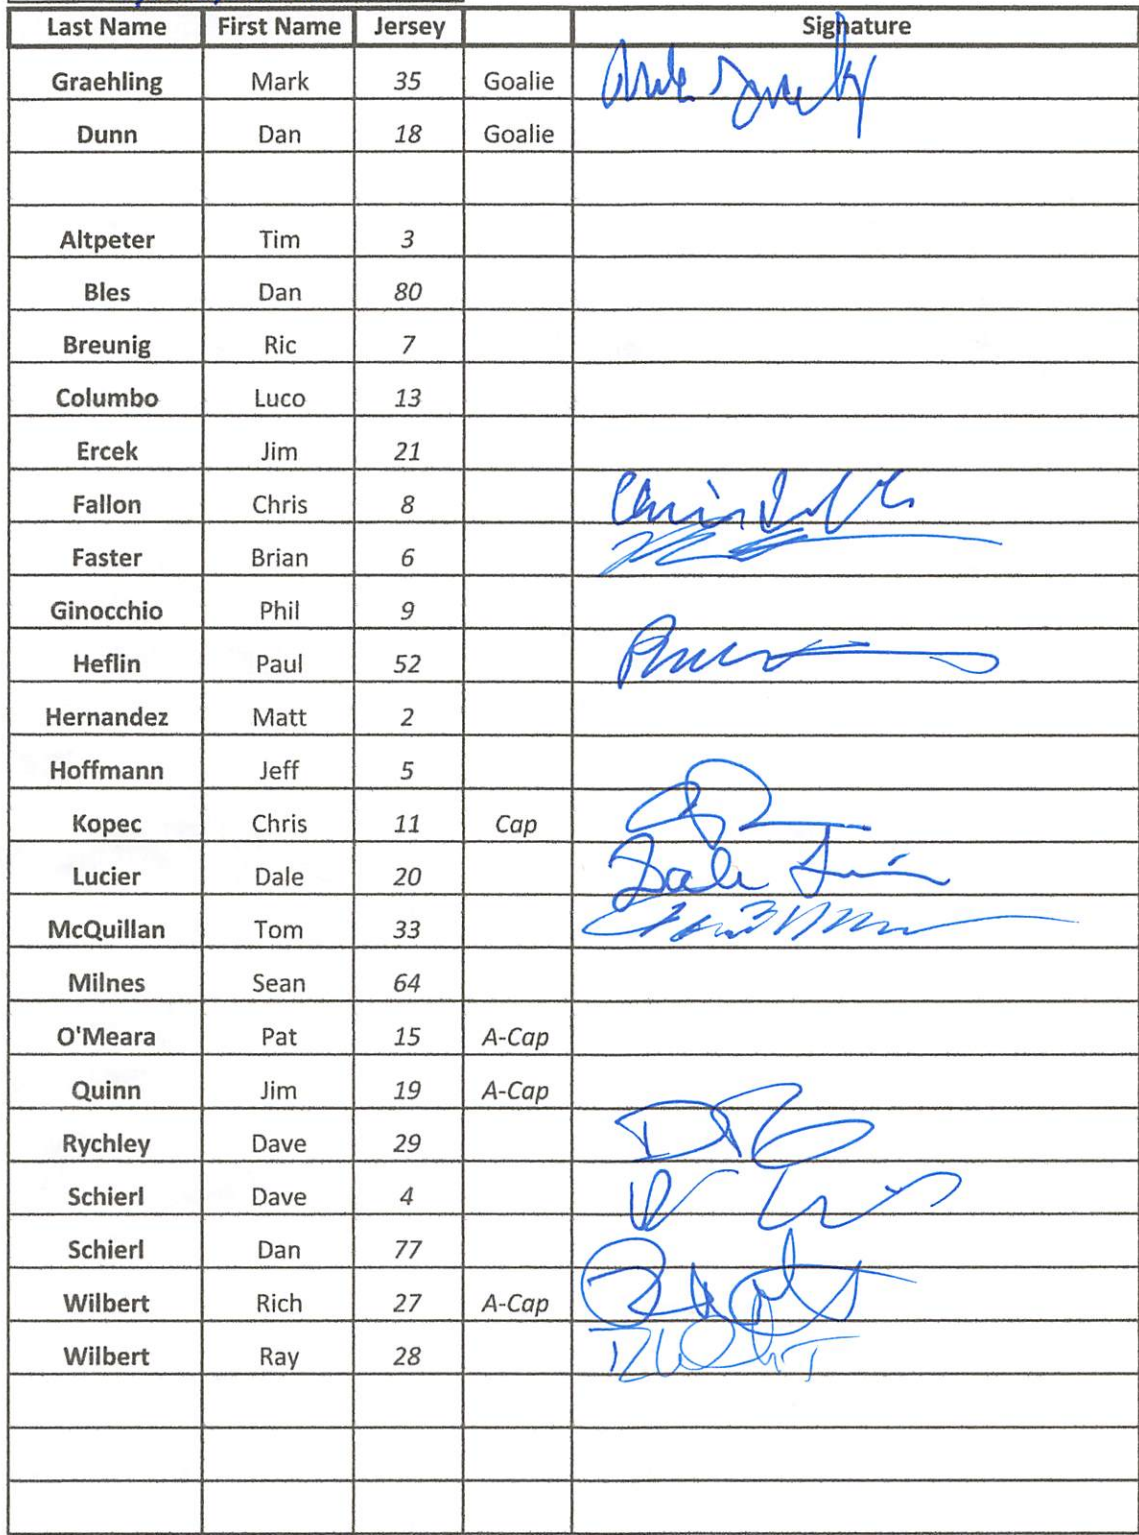 Last Name First Name Jersey Signature
Graehling Mark 35 Goalie
Dunn Dan 18 Goalie
Altpeter Tim 3
Bles Dan 80
Breunig Ric 7
Columbo Luco 13
Ercek Jim 21
Fallon Chris 8
Faster Brian 6
Ginocchio Phil 9
Heflin Paul 52
Hernandez Matt 2
Hoffmann Jeff 5
Kopec Chris 11 Cap
Lucier Dale 20 Dale
McQuillan Tom 33
Milnes Sean 64
O'Meara Pat 15 A-Cap
Quinn Jim 19 A-Cap
Rychley Dave 29
Schierl Dave 4
Schierl Dan 77
Wilbert Rich 27 A-Cap
Wilbert Ray 28